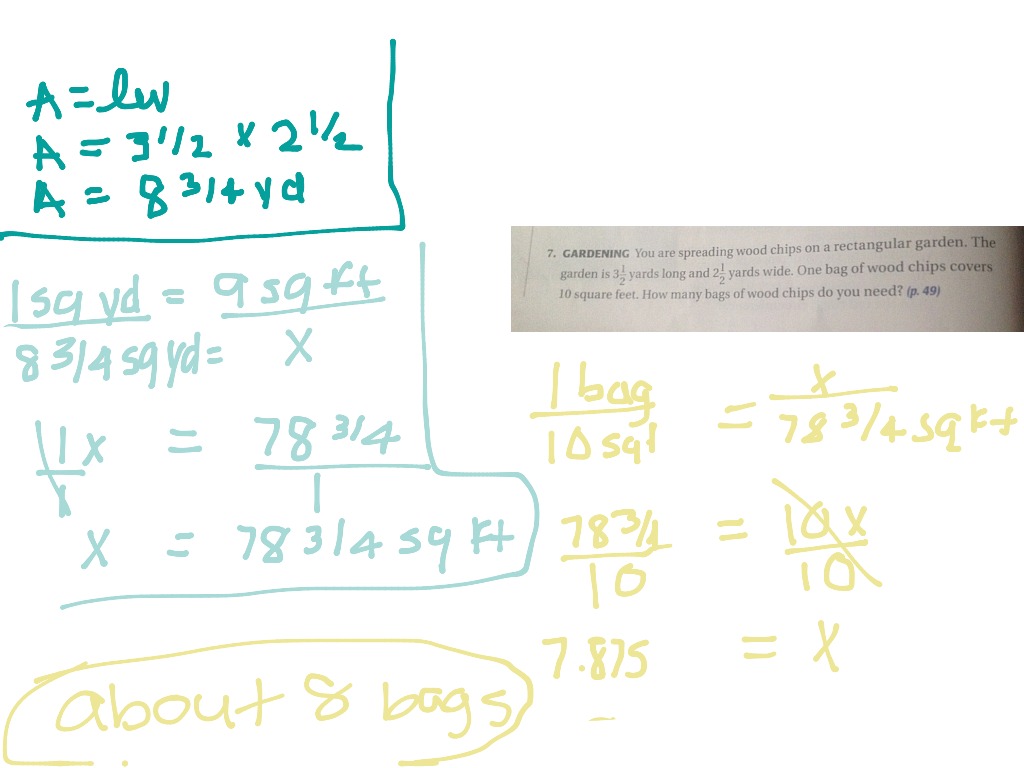 A = lw
A = 3 1/2 x 2 1/2
A = 8 3/4 yd
1 sq yd = 9 sq ft
8 3/4 sq yd = x
1x = 78 3/4
1 1
x = 78 3/4 sq ft
7. GARDENING You are spreading wood chips on a rectangular garden. The
garden is 3 1/2 yards long and 2 1/2 yards wide. One bag of wood chips covers
10 square feet. How many bags of wood chips do you need? (p. 49)
1 bag = x
10 sqf 78 3/4 sq ft
78 3/4 = 10x
10 10
7.875 = x
about 8 bags